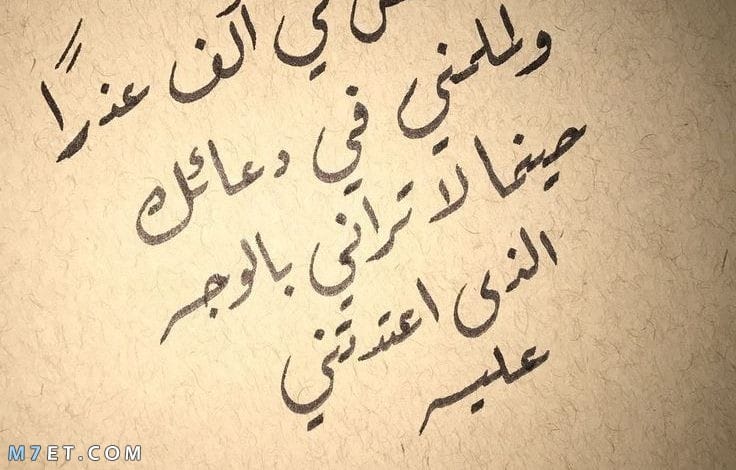 لي ألف عذرًا
ولملمني في دعائك
حينما لا تراني بالوجه
الذى اعتدتني
عليه
M7ET.COM